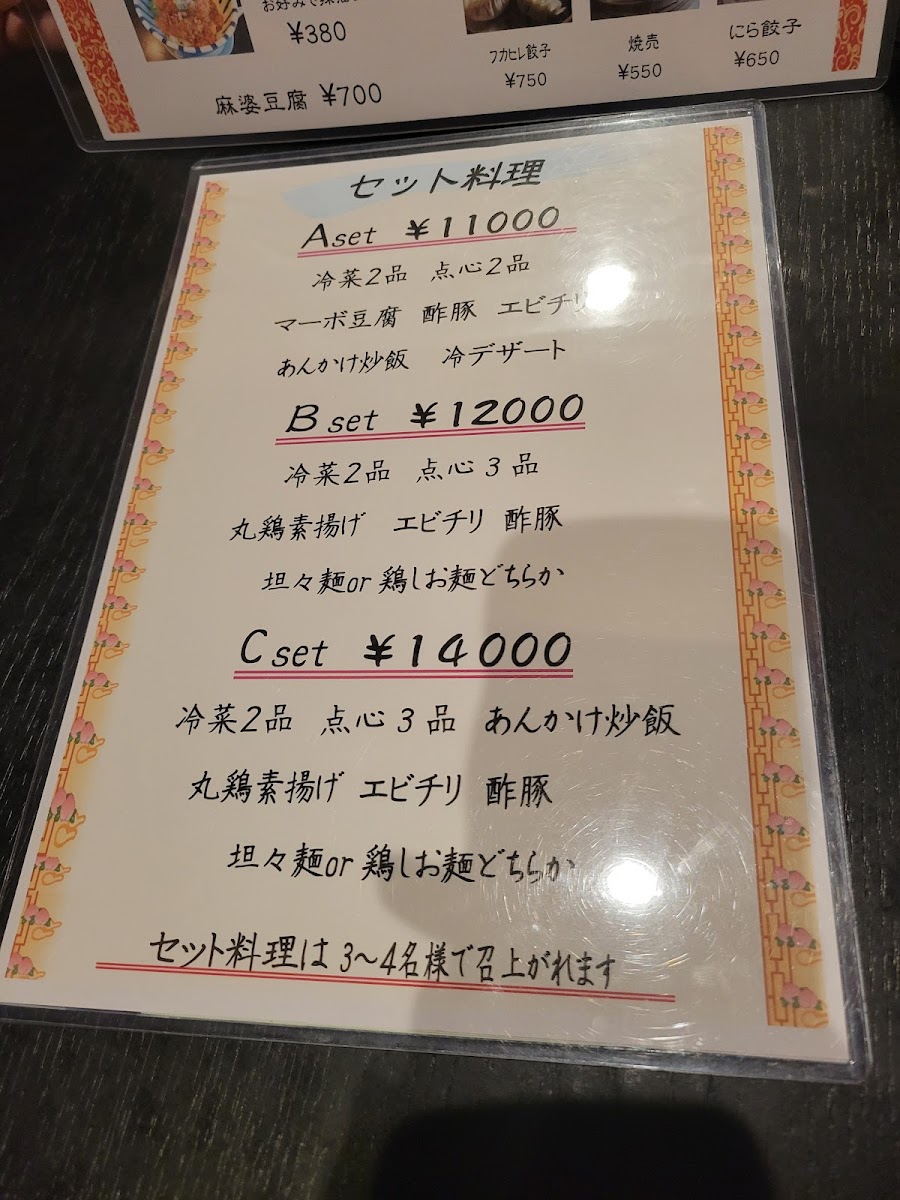 お好みで辣油
¥380
麻婆豆腐 ¥700
フカヒレ餃子
¥750
焼売
¥550
にら餃子
¥650
セット料理
Aset ¥11000
冷菜2品 点心2品
マーボ豆腐 酢豚 エビチリ
あんかけ炒飯 冷デザート
B set ¥12000
冷菜2品 点心3品
丸鶏素揚げ エビチリ 酢豚
坦々麺or鶏しお麺どちらか
C set ¥14000
冷菜2品 点心3品 あんかけ炒飯
丸鶏素揚げ エビチリ 酢豚
坦々麺or鶏しお麺どちらか
セット料理は3～4名様で召上がれます